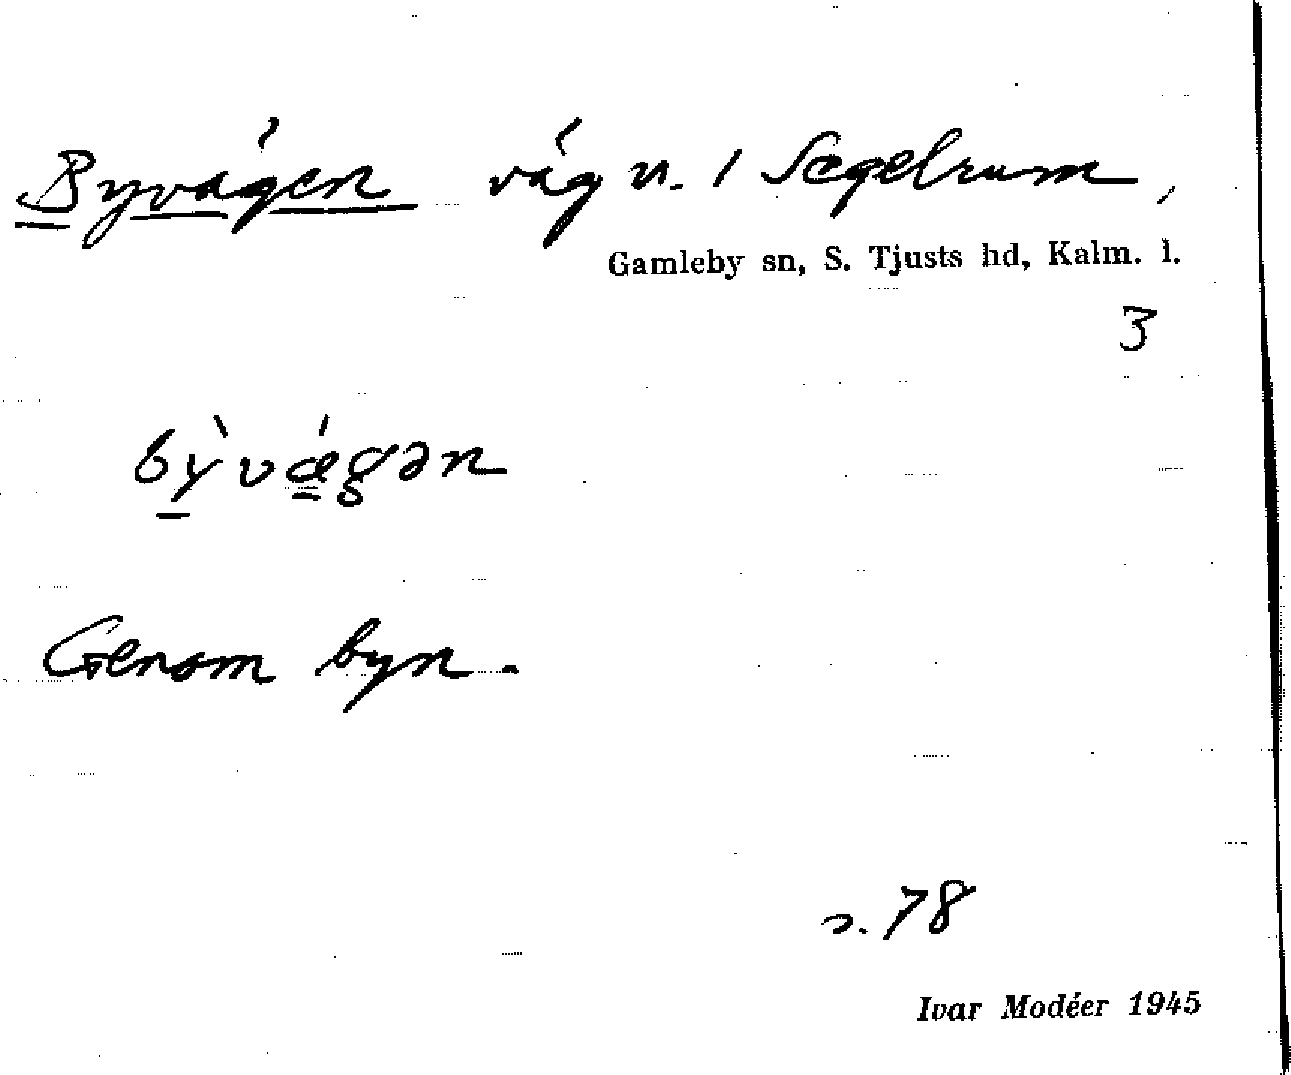 Byvägen väg n. / Segelrum,
Gamleby sn, S. Tjusts hd, Kalm. l.
3
bỳ̱vǽ̳gən
Genom byn.
s. 78
Ivar Modéer 1945